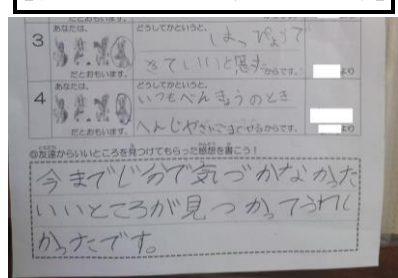 3
あなたは、
だとおもいます。
どうしてかというと、
はっぴょうで
きていいと思う
からです。
より
4
あなたは、
だとおもいます。
どうしてかというと、
いつもべんきょうのとき
へんじや
からです。
より
◎友達からいいところを見つけてもらった感想を書こう！
今までじ分で気づかなかった
いいところが見つかってうれし
かったです。